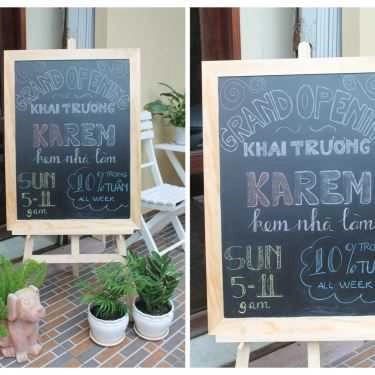 GRAND OPENING
KHAI TRƯƠNG
KAREM
kem nhà làm
SUN
5-11
9am
10% TRONG TUẦN
ALL WEEK
GRAND OPENING
KHAI TRƯƠNG
KAREM
kem nhà làm
SUN
5-11
9am
10% TRONG TUẦN
ALL WEEK